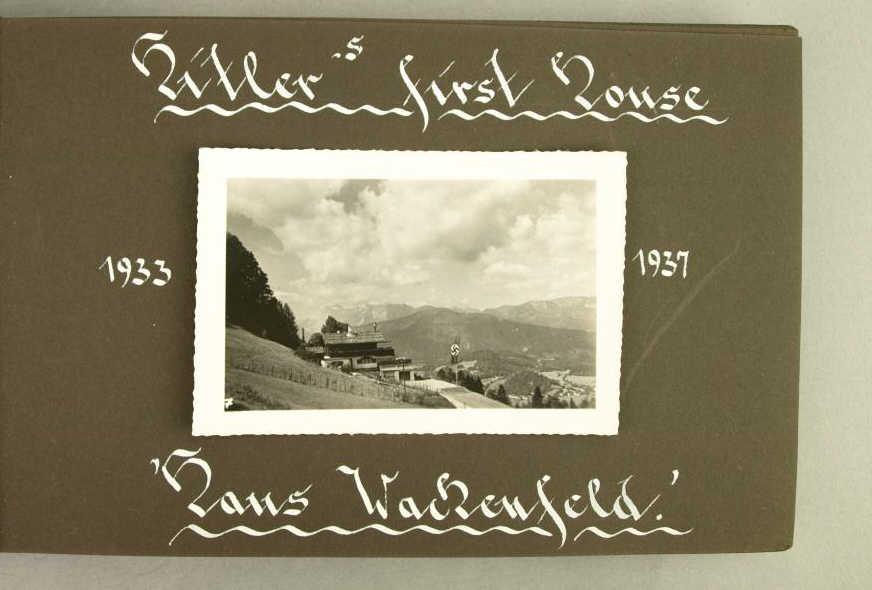 Hitler's first House
1933
1937
'Haus Wachenfeld.'